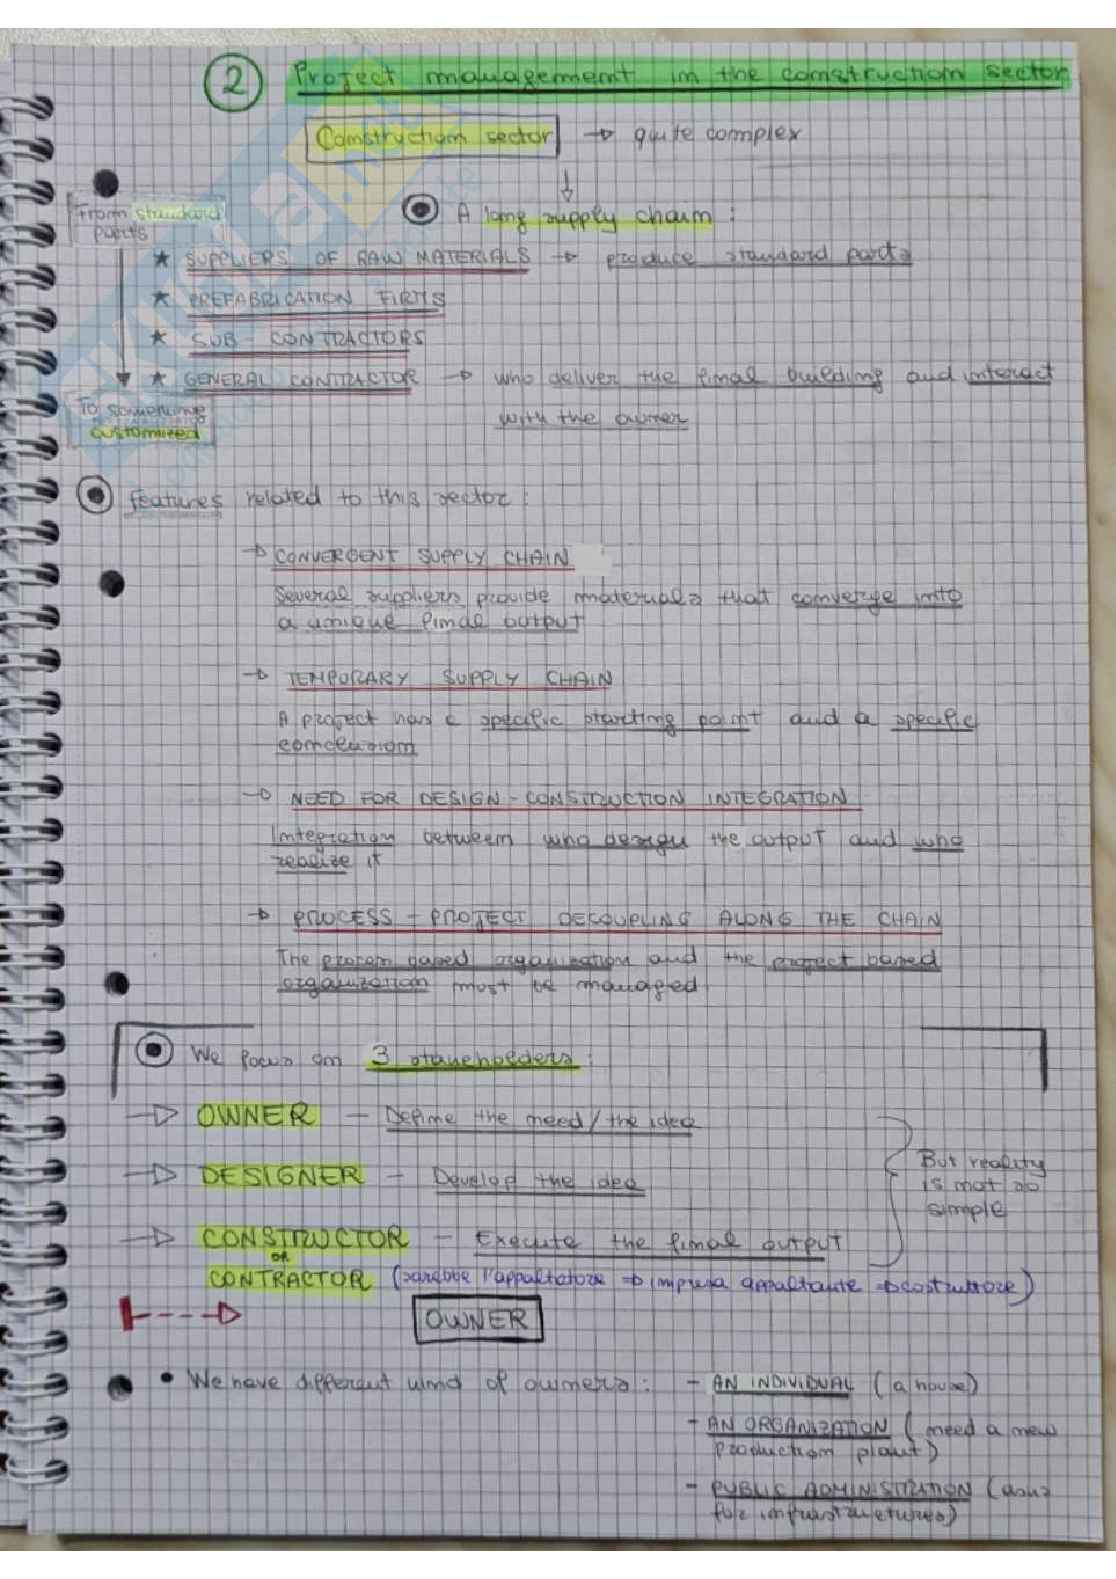 2 Project management in the construction sector
Construction sector → quite complex
From standard
parts
A long supply chain :
★ SUPPLIERS OF RAW MATERIALS → produce standard parts
★ PREFABRICATION FIRMS
★ SUB-CONTRACTORS
★ GENERAL CONTRACTOR → who deliver the final building and interact
with the owner
To something
customized
features related to this sector :
→ CONVERGENT SUPPLY CHAIN
Several suppliers provide materials that converge into
a unique final output
→ TEMPORARY SUPPLY CHAIN
A project has a specific starting point and a specific
conclusion
→ NEED FOR DESIGN-CONSTRUCTION INTEGRATION
Integration between who design the output and who
realize it
→ PROCESS-PROJECT DECOUPLING ALONG THE CHAIN
The based organization and the project based
organization must be managed
We focus on 3 stakeholders :
→ OWNER – Define the need/the idea
→ DESIGNER – Develop the idea
→ CONSTRUCTOR – Execute the final output
OR
CONTRACTOR (sarebbe l'appaltatore → impresa appaltante → costruttore)
But reality
is not so
simple
OWNER
• We have different kind of owners : - AN INDIVIDUAL (a house)
- AN ORGANIZATION (need a new
production plant)
- PUBLIC ADMINISTRATION (asks
for infrastructures)